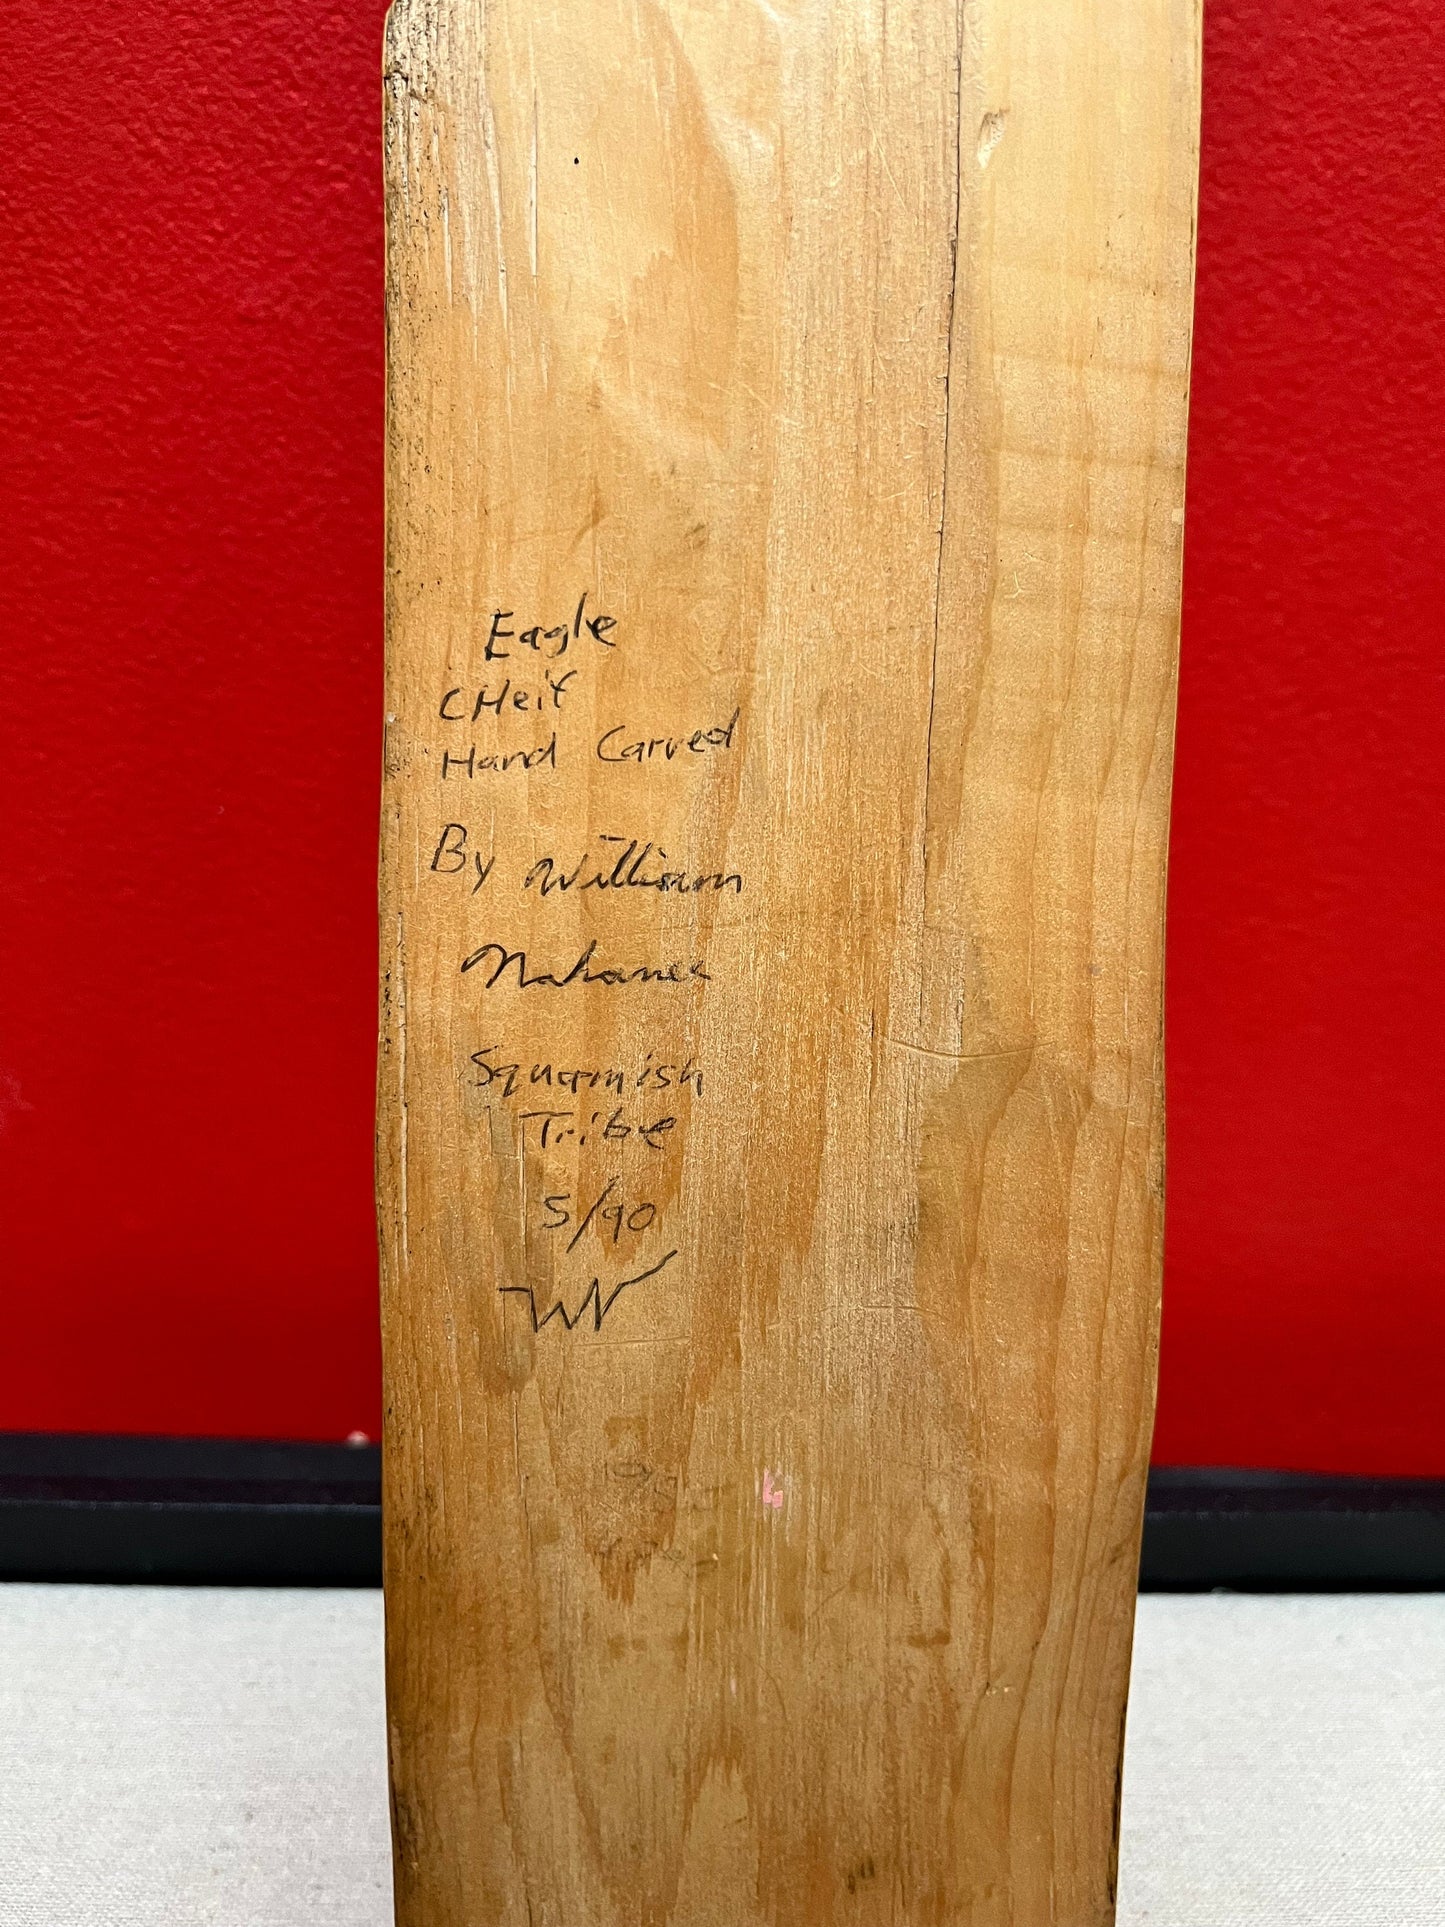 Eagle
CHeif
Hand Carved
By William
Nahanee
Squamish
Tribe
5/90
WN